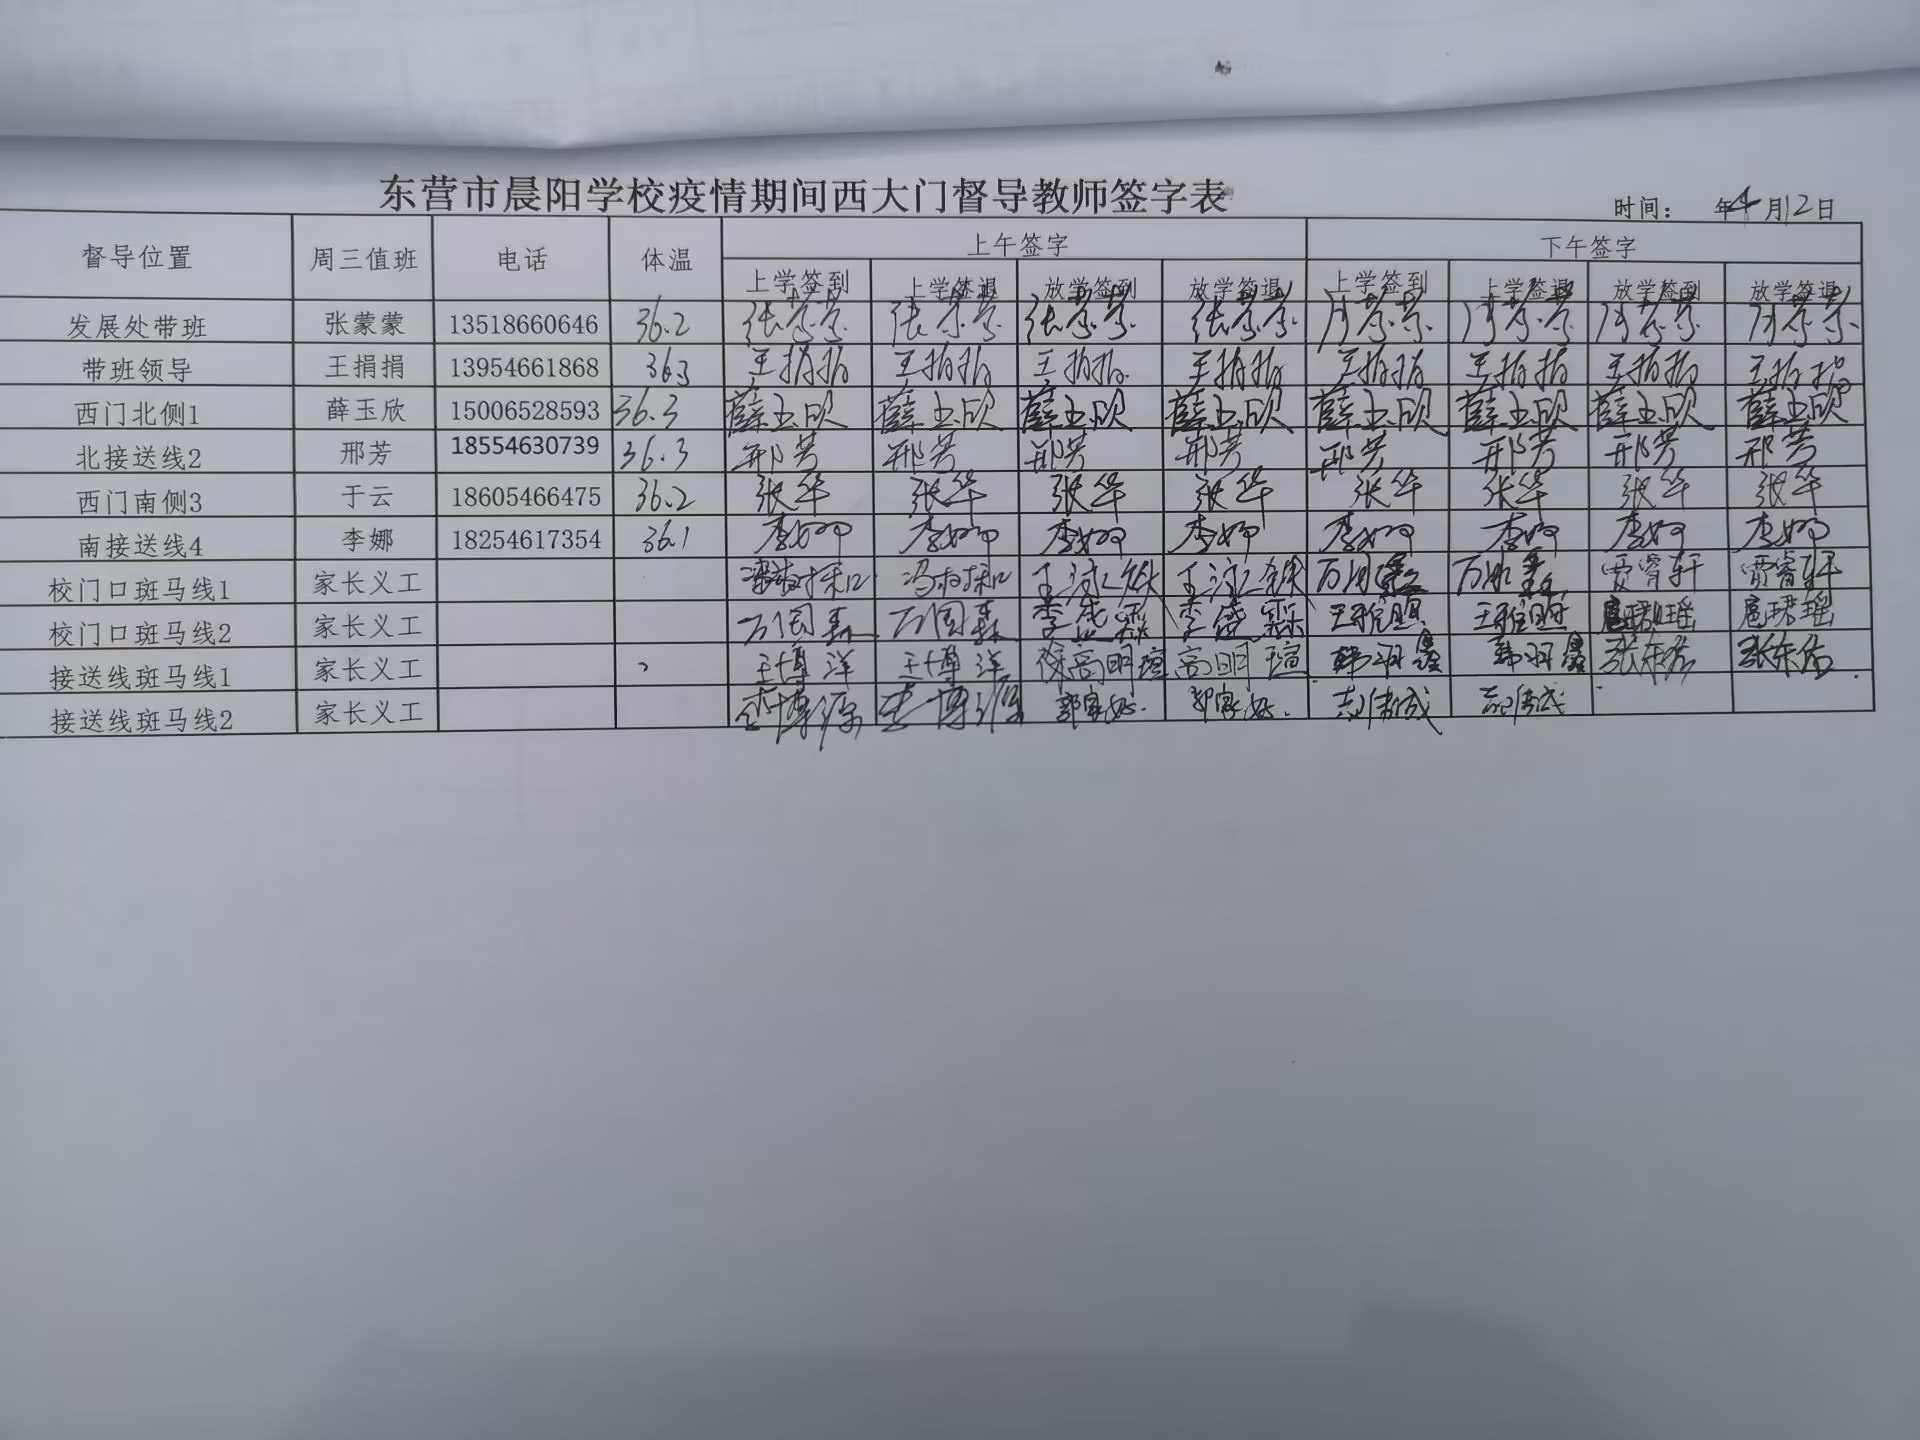 东营市晨阳学校疫情期间西大门督导教师签字表
时间： 年4月12日
督导位置 周三值班 电话 体温 上午签字 下午签字
上学签到 上学签退 放学签到 放学签退 上学签到 上学签退 放学签到 放学签退
发展处带班 张蒙蒙 13518660646 36.2 张蒙蒙 张蒙蒙 张蒙蒙 张蒙蒙 张蒙蒙 张蒙蒙 张蒙蒙 张蒙蒙
带班领导 王捐捐 13954661868 36.3 王捐捐 王捐捐 王捐捐 王捐捐 王捐捐 王捐捐 王捐捐 王捐捐
西门北侧1 薛玉欣 15006528593 36.3 薛玉欣 薛玉欣 薛玉欣 薛玉欣 薛玉欣 薛玉欣 薛玉欣 薛玉欣
北接送线2 邢芳 18554630739 36.3 邢芳 邢芳 邢芳 邢芳 邢芳 邢芳 邢芳 邢芳
西门南侧3 于云 18605466475 36.2 张华 张华 张华 张华 张华 张华 张华 张华
南接送线4 李娜 18254617354 36.1 李娜 李娜 李娜 李娜 李娜 李娜 李娜 李娜
校门口斑马线1 家长义工 贾睿轩 贾睿轩
校门口斑马线2 家长义工 万国森 万国森 王雅照 王雅照
接送线斑马线1 家长义工 王博洋 王博洋 高明瑄 高明瑄 韩羽 韩羽 张东佑 张东佑
接送线斑马线2 家长义工 李博源 李博源 郭家妤 郭家妤